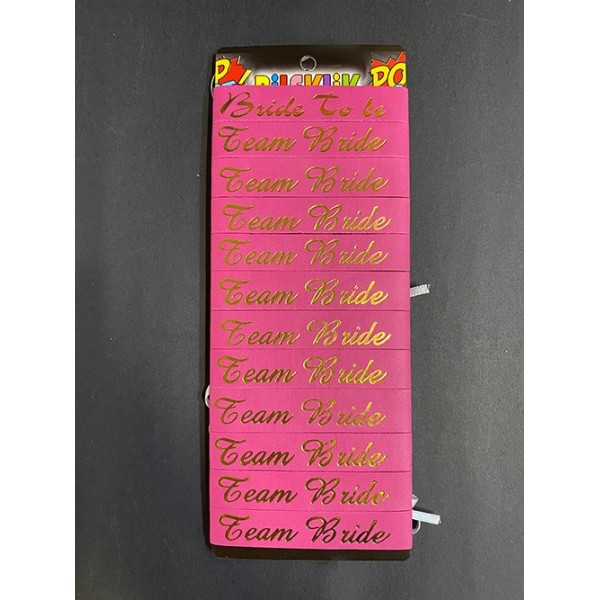 Bride To be
Team Bride
Team Bride
Team Bride
Team Bride
Team Bride
Team Bride
Team Bride
Team Bride
Team Bride
Team Bride
Team Bride